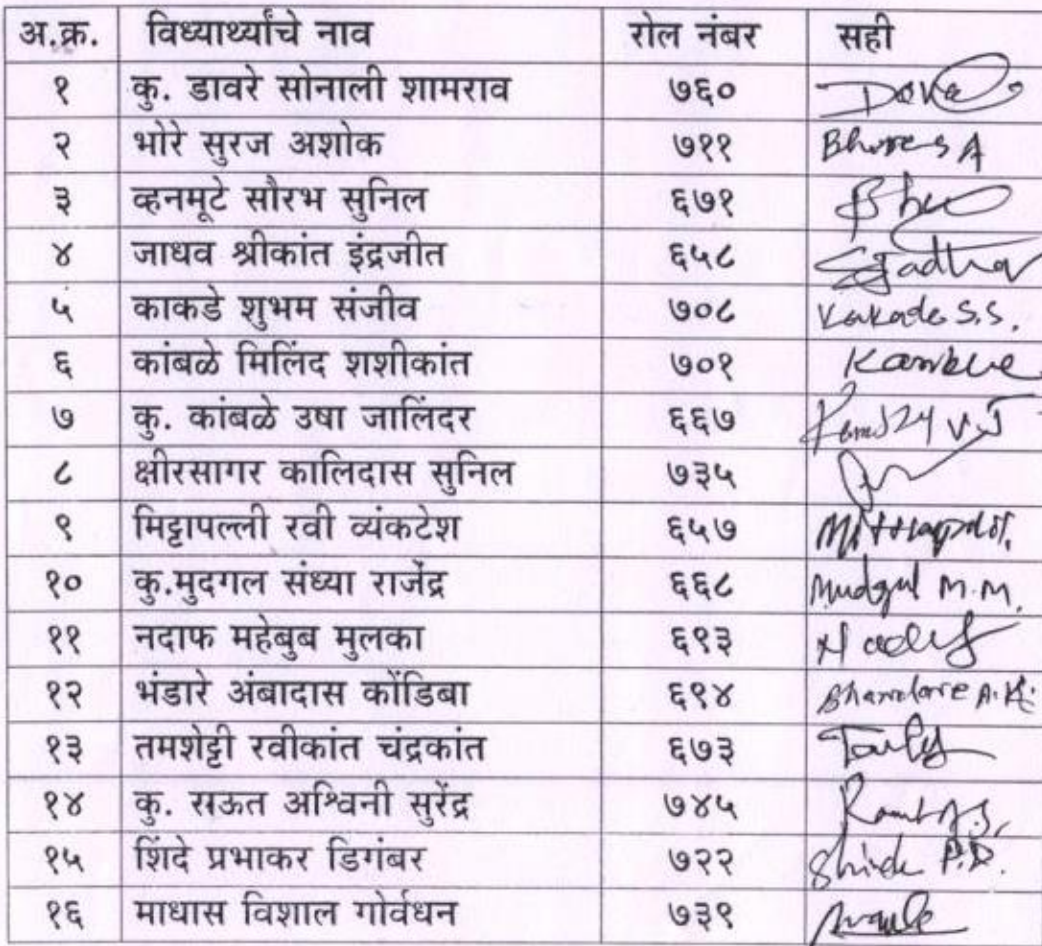 अ.क्र. विध्यार्थ्यांचे नाव रोल नंबर सही
१ कु. डावरे सोनाली शामराव ७६०
२ भोरे सुरज अशोक ७११ Bhore S A
३ व्हनमूटे सौरभ सुनिल ६७१
४ जाधव श्रीकांत इंद्रजीत ६५८ Jadhav
५ काकडे शुभम संजीव ७०८ Kakade S.S.
६ कांबळे मिलिंद शशीकांत ७०१ Kamble
७ कु. कांबळे उषा जालिंदर ६६७
८ क्षीरसागर कालिदास सुनिल ७३५
९ मिट्टापल्ली रवी व्यंकटेश ६५७
१० कु.मुदगल संध्या राजेंद्र ६६८ Mudgal M.M.
११ नदाफ महेबुब मुलका ६९३
१२ भंडारे अंबादास कोंडिबा ६९४ Bhandare A.K.
१३ तमशेट्टी रवीकांत चंद्रकांत ६७३
१४ कु. राऊत अश्विनी सुरेंद्र ७४५
१५ शिंदे प्रभाकर डिगंबर ७२२ Shinde P.D.
१६ माधास विशाल गोर्वधन ७३९